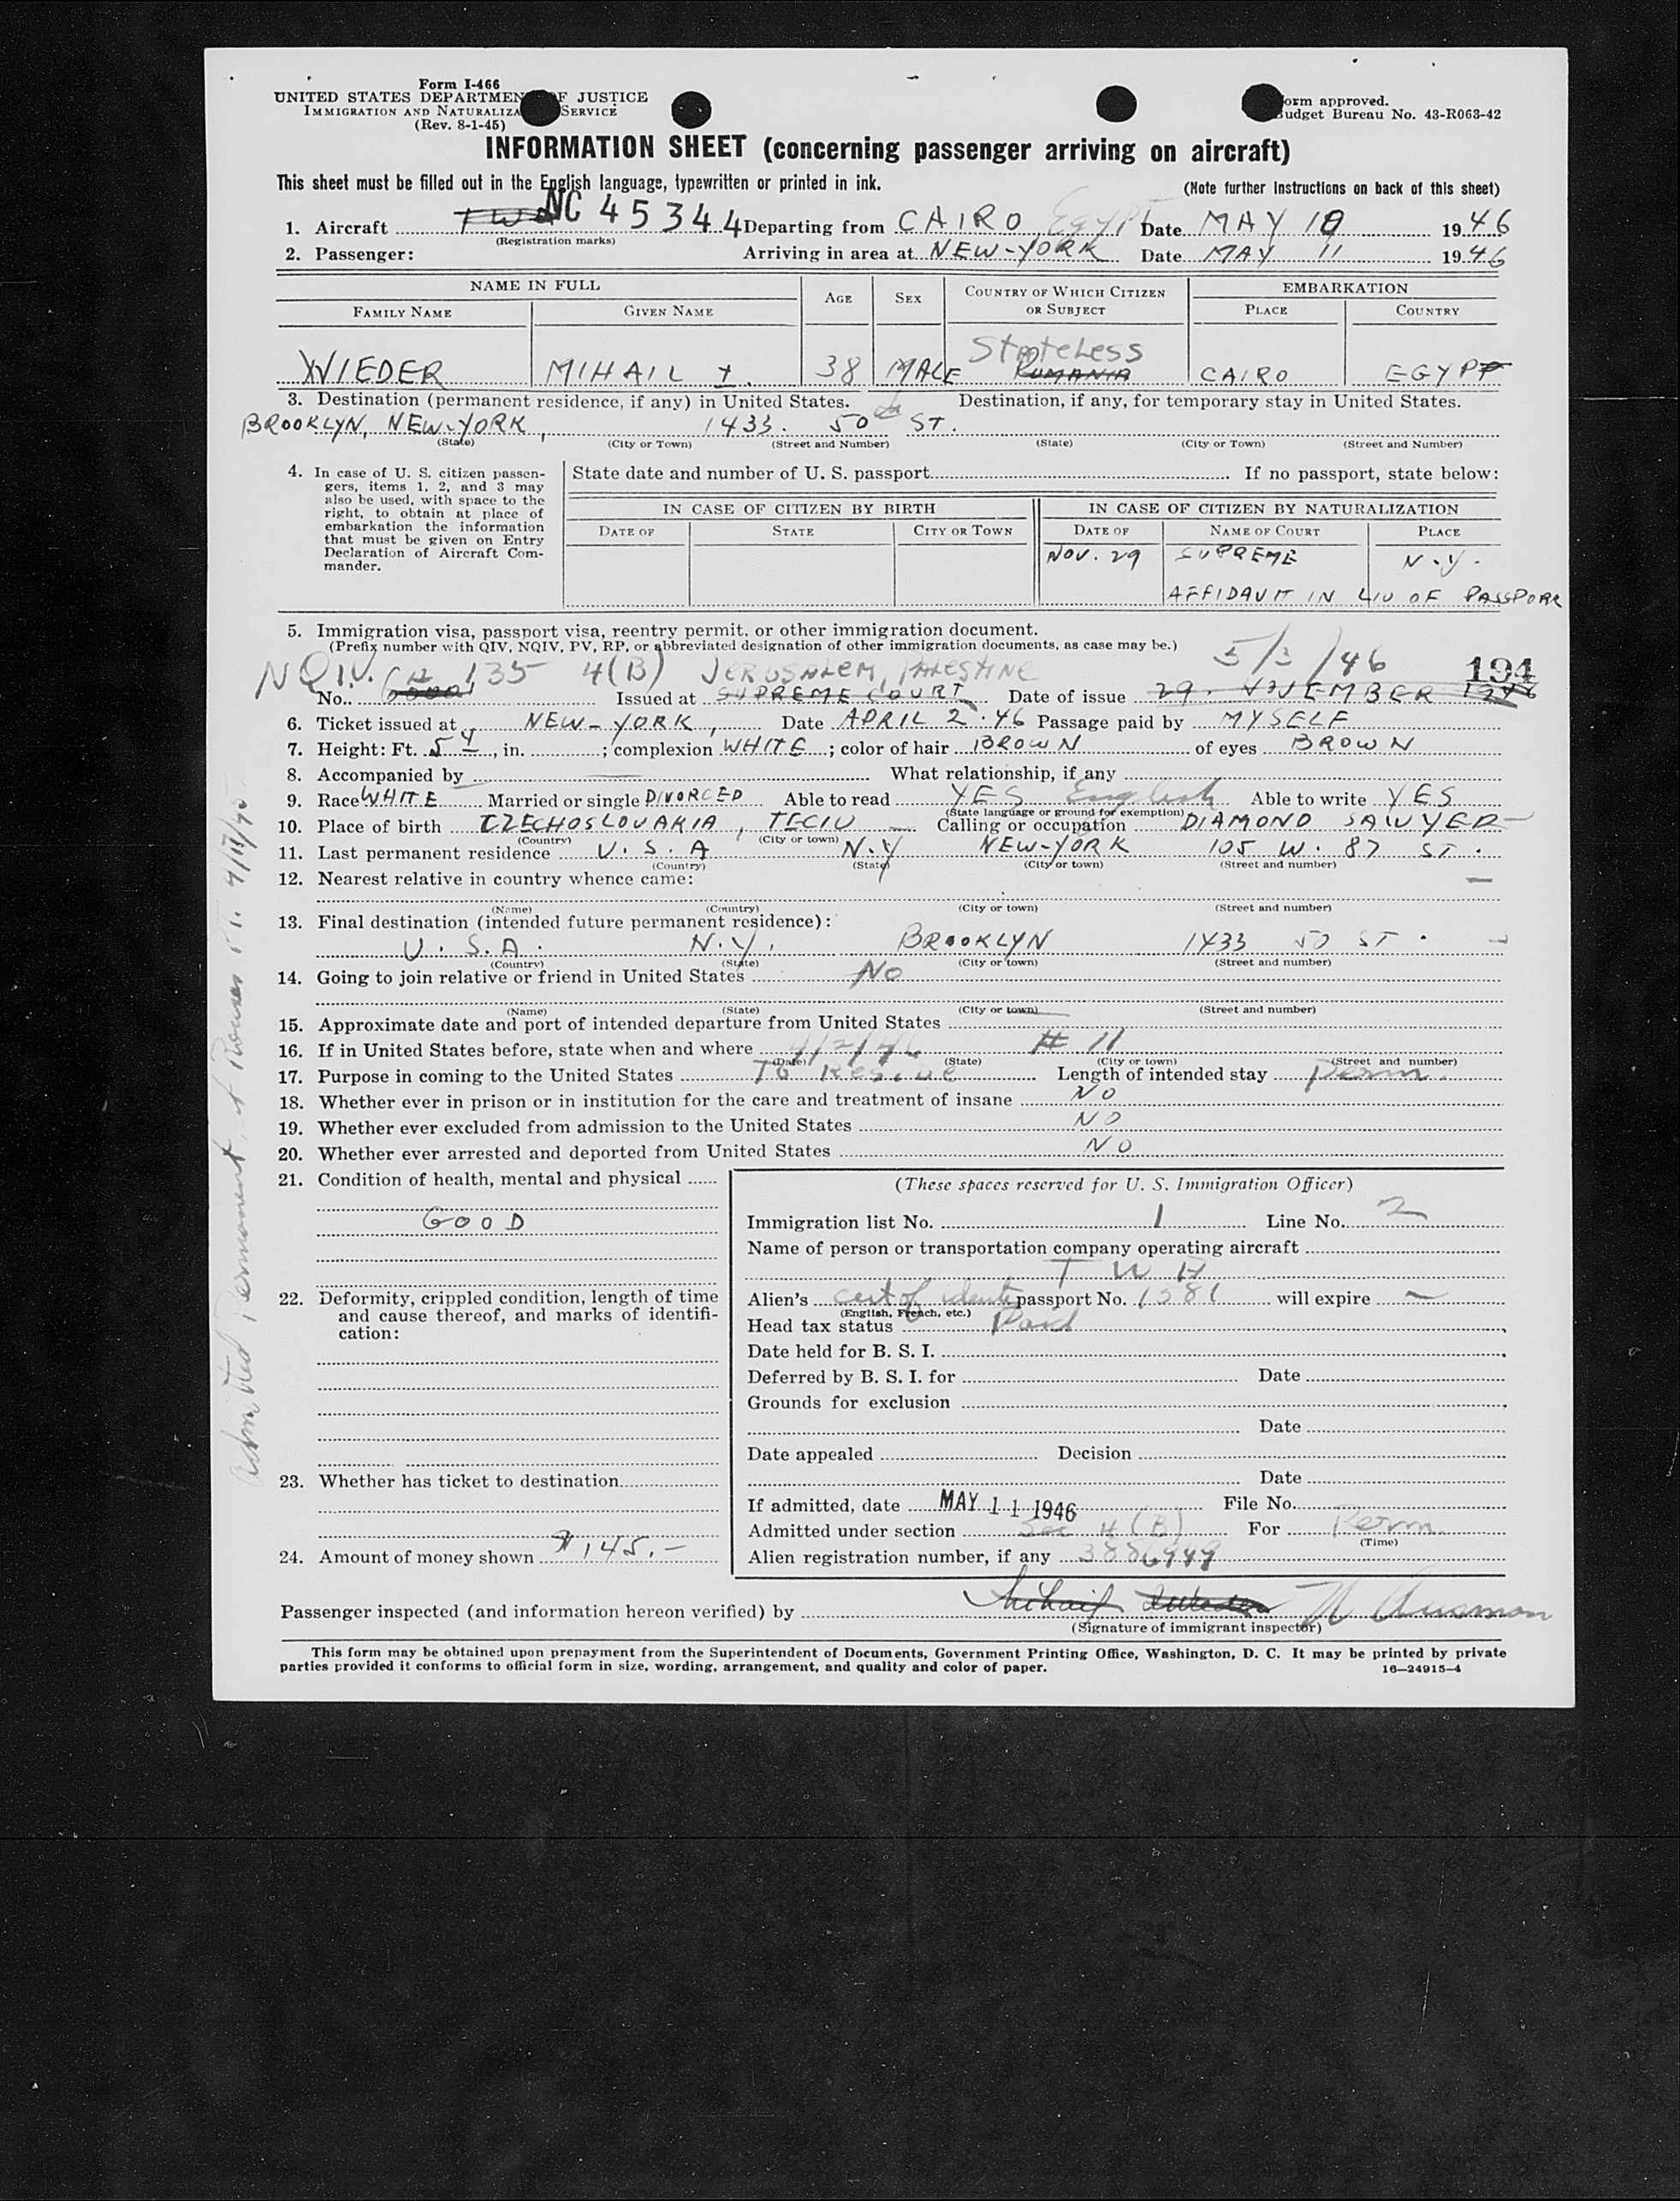 Form I-466
UNITED STATES DEPARTMEN F JUSTICE
IMMIGRATION AND NATURALIZA SERVICE
(Rev. 8-1-45)
orm approved.
udget Bureau No. 43-R063-42
INFORMATION SHEET (concerning passenger arriving on aircraft)
This sheet must be filled out in the English language, typewritten or printed in ink.
(Note further instructions on back of this sheet)
1. Aircraft TWA NC 45344 Departing from CAIRO Egypt Date MAY 10 1946
(Registration marks)
2. Passenger: Arriving in area at NEW-YORK Date MAY 11 1946
NAME IN FULL AGE SEX COUNTRY OF WHICH CITIZEN OR SUBJECT EMBARKATION
FAMILY NAME GIVEN NAME PLACE COUNTRY
Stateless
WIEDER MIHAIL I. 38 MALE RUMANIA CAIRO EGYPT
3. Destination (permanent residence, if any) in United States. Destination, if any, for temporary stay in United States.
BROOKLYN, NEW-YORK, 1433. 50 th ST.
(State) (City or Town) (Street and Number) (State) (City or Town) (Street and Number)
4. In case of U. S. citizen passengers, items 1, 2, and 3 may also be used, with space to the right, to obtain at place of embarkation the information that must be given on Entry Declaration of Aircraft Commander.
State date and number of U. S. passport If no passport, state below:
IN CASE OF CITIZEN BY BIRTH IN CASE OF CITIZEN BY NATURALIZATION
DATE OF STATE CITY OR TOWN DATE OF NAME OF COURT PLACE
NOV. 29 SUPREME N.Y.
AFFIDAVIT IN LIU OF PASSPORT
5. Immigration visa, passport visa, reentry permit, or other immigration document.
(Prefix number with QIV, NQIV, PV, RP, or abbreviated designation of other immigration documents, as case may be.)
NQIV. 135 4(B) JERUSALEM, PALESTINE 5/3/46 194
No. Issued at SUPREME COURT Date of issue 29. NOVEMBER
6. Ticket issued at NEW-YORK, Date APRIL 2. 46 Passage paid by MYSELF
7. Height: Ft. 5 4, in. ; complexion WHITE ; color of hair BROWN of eyes BROWN
8. Accompanied by What relationship, if any
9. Race WHITE Married or single DIVORCED Able to read YES English Able to write YES
(State language or ground for exemption)
10. Place of birth CZECHOSLOVAKIA, TECIU Calling or occupation DIAMOND SAWYER
(Country) (City or town)
11. Last permanent residence U.S.A N.Y NEW-YORK 105 W. 87 ST.
(Country) (State) (City or town) (Street and number)
12. Nearest relative in country whence came: —
(Name) (Country) (City or town) (Street and number)
13. Final destination (intended future permanent residence):
U.S.A. N.Y. BROOKLYN 1433 50 ST.
(Country) (State) (City or town) (Street and number)
14. Going to join relative or friend in United States NO
(Name) (State) (City or town) (Street and number)
15. Approximate date and port of intended departure from United States
16. If in United States before, state when and where 4/2/46 # 11
(Date) (State) (City or town) (Street and number)
17. Purpose in coming to the United States To Reside Length of intended stay perm.
18. Whether ever in prison or in institution for the care and treatment of insane NO
19. Whether ever excluded from admission to the United States NO
20. Whether ever arrested and deported from United States NO
21. Condition of health, mental and physical
GOOD
22. Deformity, crippled condition, length of time and cause thereof, and marks of identification:
23. Whether has ticket to destination
24. Amount of money shown 145.-
(These spaces reserved for U. S. Immigration Officer)
Immigration list No. 1 Line No. 2
Name of person or transportation company operating aircraft
T W A
Alien's cert of identi passport No. 1581 will expire —
(English, French, etc.)
Head tax status Paid
Date held for B. S. I.
Deferred by B. S. I. for Date
Grounds for exclusion
Date
Date appealed Decision
Date
If admitted, date MAY 11 1946 File No.
Admitted under section Sec 4(B) For Perm.
(Time)
Alien registration number, if any 3886949
Passenger inspected (and information hereon verified) by Mihail Wieder
(Signature of immigrant inspector)
This form may be obtained upon prepayment from the Superintendent of Documents, Government Printing Office, Washington, D. C. It may be printed by private
parties provided it conforms to official form in size, wording, arrangement, and quality and color of paper. 16—24915-4
Admitted, Permanent